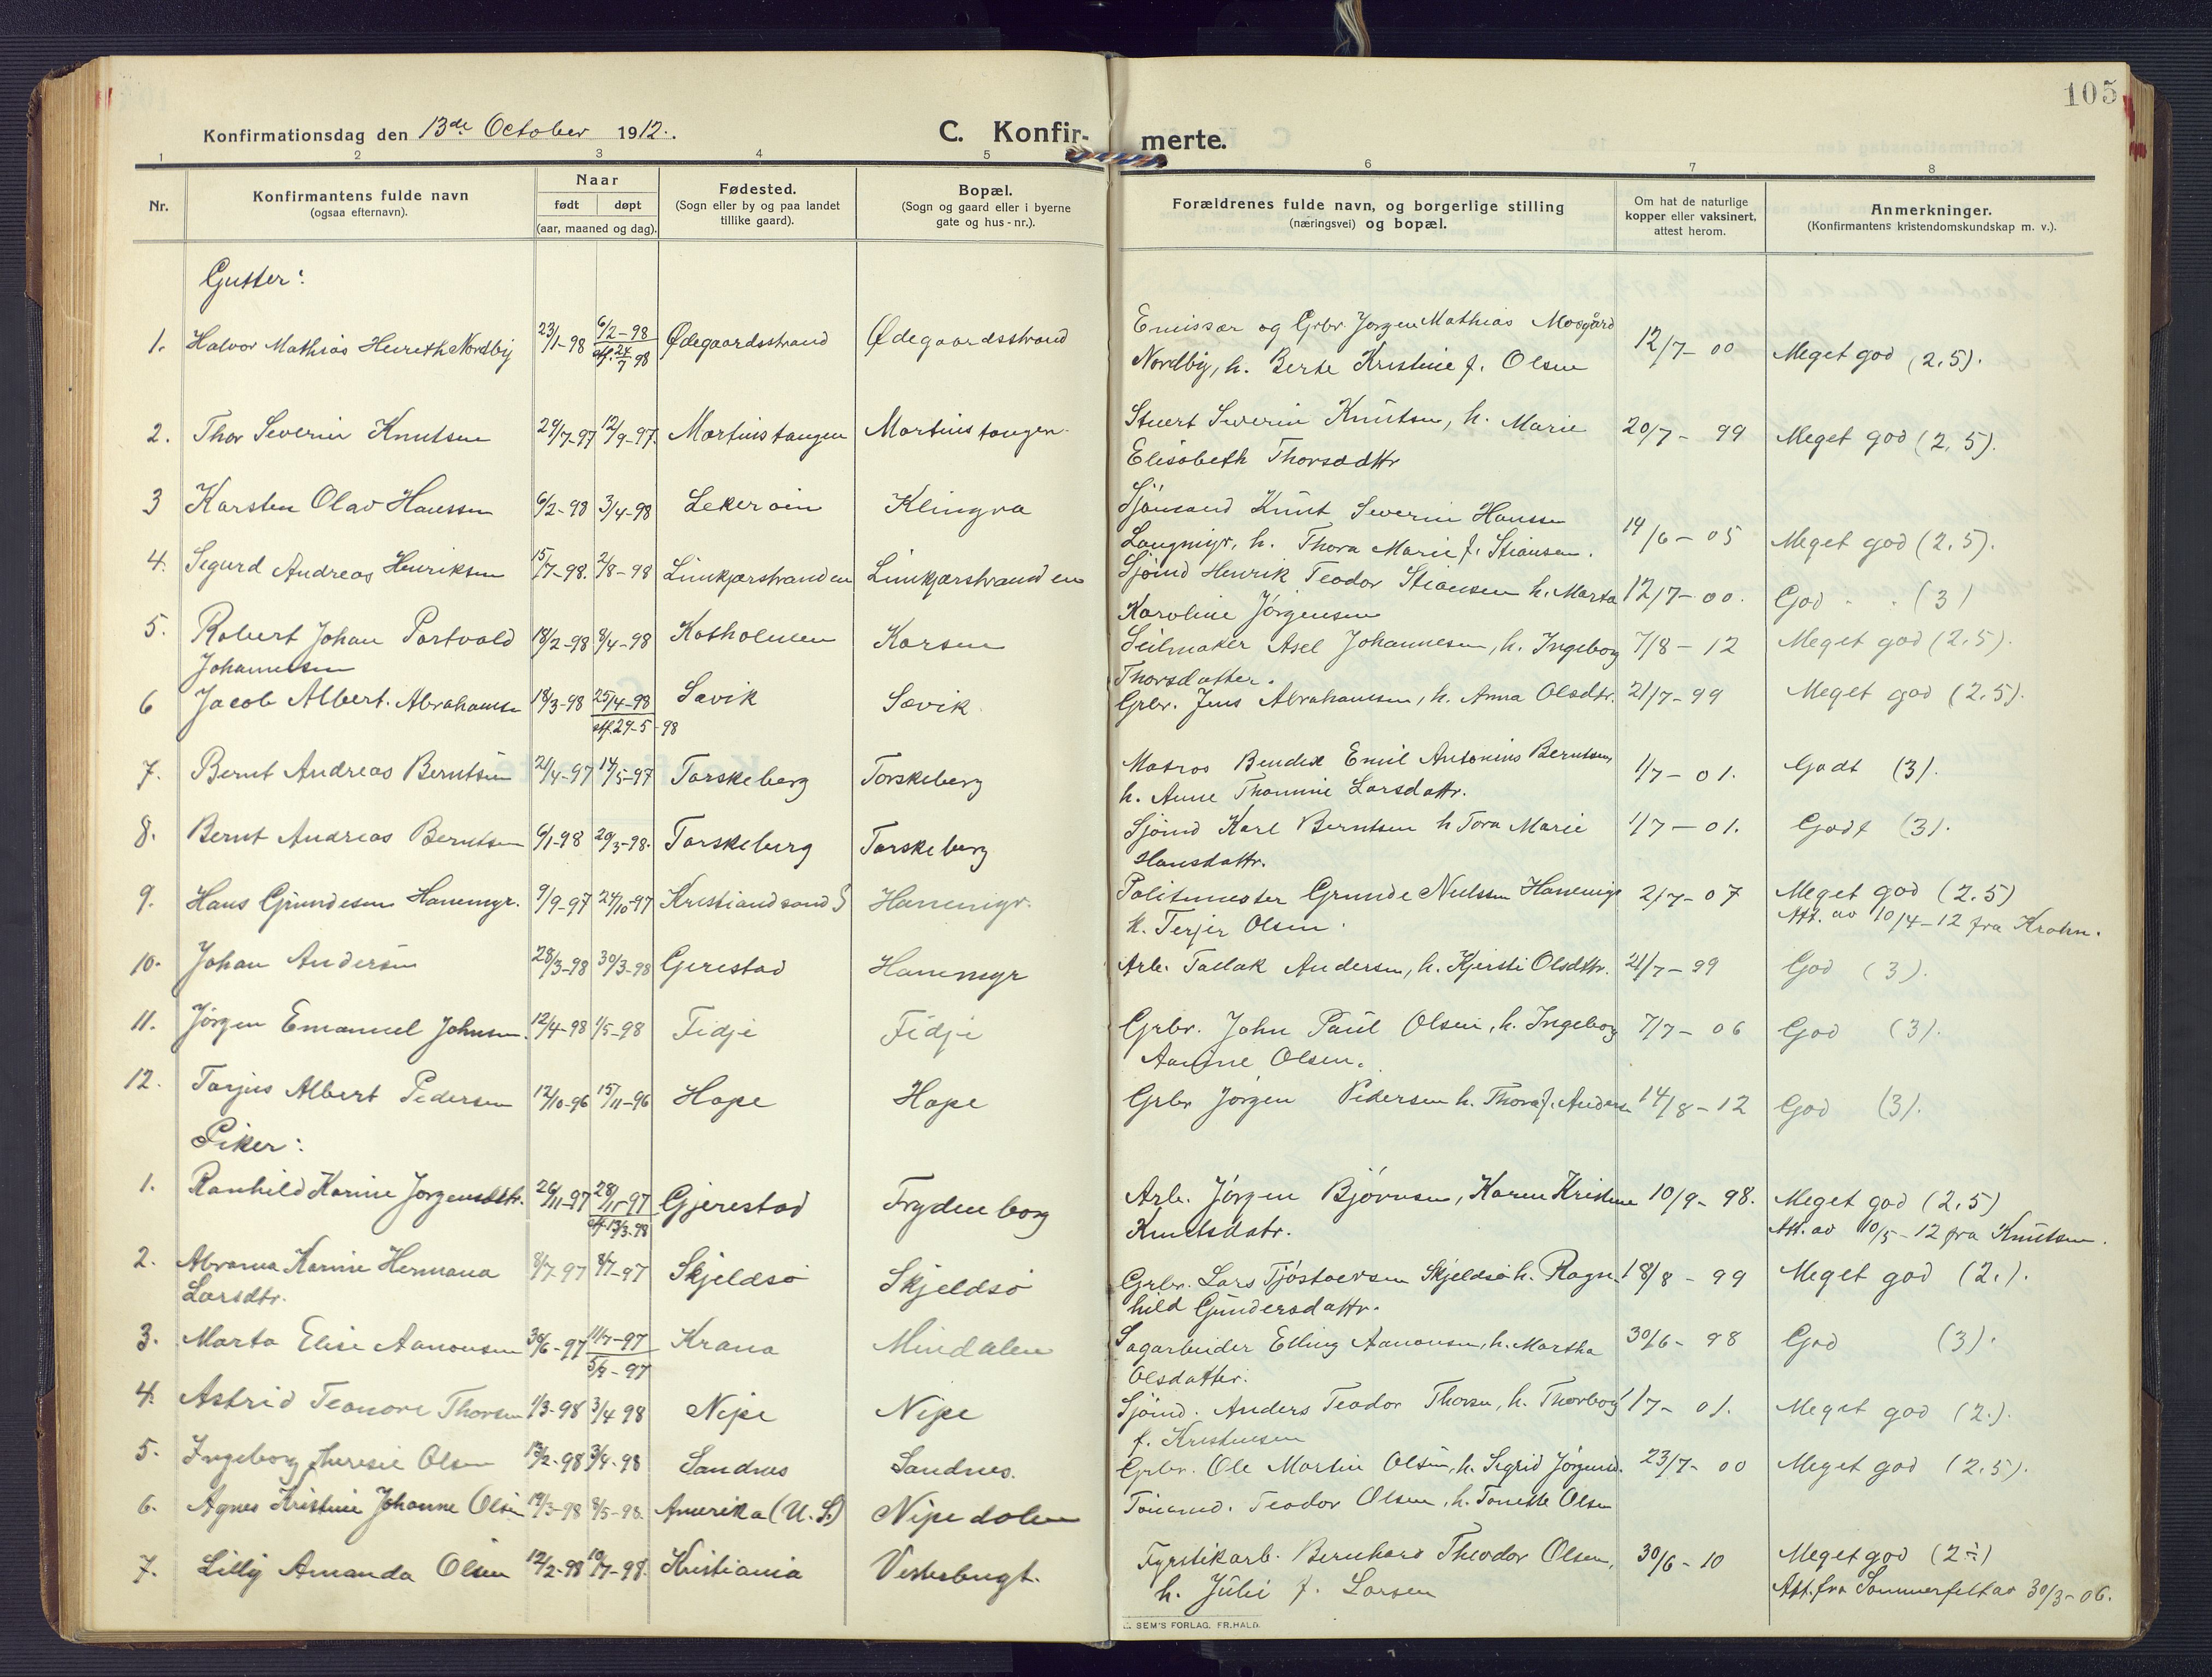 105
Konfirmationsdag den 13de October 1912.
C. Konfir-
merte.
1 2 3 4 5 6 7 8
Nr.
Konfirmantens fulde navn
(ogsaa efternavn).
Naar
født døpt
(aar, maaned og dag).
Fødested.
(Sogn eller by og paa landet
tillike gaard).
Bopæl.
(Sogn og gaard eller i byerne
gate og hus-nr.).
Forældrenes fulde navn, og borgerlige stilling
(næringsvei) og bopæl.
Om hat de naturlige
kopper eller vaksinert,
attest herom.
Anmerkninger.
(Konfirmantens kristendomskundskap m. v.).
Gutter:
1. Halvor Mathias Nordby 23/1-98 6/2-98 Ødegaardsstrand Ødegaardsstrand Emissær og Grbr. Jørgen Mathias Mosgård 12/7-00 Meget god (2,5).
24/7 98 Nordby, h. Berte Kristine f. Olsen
2. Thor Severin Knutsen 29/7-97 12/9-97. Martinstangen Martinstangen Stuert Severin Knutsen, h. Marie 20/7-99 Meget god (2,5).
Elisabeth Thorsdattr
3 Karsten Olav Hanssen 6/2-98 3/4-98 Klingra Sjømand Knut Severin Hanssen 14/6-05 Meget god (2,5).
Langmyr, h. Thora Marie f. Stiansen.
4. Sigurd Andreas Henriksen 15/7-98. 2/8-98 Limkjærstranden Limkjærstranden Sjømd Henrik Teodor Stiansen h. Marta 12/7-00. God (3)
Karoline Jørgensen
5. Robert Johan Portvald 18/2-98 8/4-98 Katholmen Karsen Seilmaker Johannesen, h. Ingeborg 7/8-12 Meget god (2,5).
Johannesen Thorsdatter.
6 Jacob Albert Abrahamsen 18/3-98 25/4-98 Savik Savik Grbr. Jens Abrahamsen, h. Anna Olsdtr. 21/7-99 Meget god (2,5).
stf. 29-5-98
7. Bernt Andreas Berntsen 21/4-97 14/5-97 Torskeberg Torskeberg Matros Bendix Emil Antonius Berntsen, 1/7-01. Godt (3).
h. Anne Thomine Larsdattr.
8. Bernt Andreas Berntsen 6/1-98 20/3-98. Torskeberg Torskeberg Sjømd Karl Berntsen h Tora Marie 1/7-01. Godt (3).
Hansdattr.
9. Hans Grundesen Hanemyr. 9/9-97 24/10-97 Kristiandsand S Hanemyr. Politimester Grunde Nielssen Hanemyr 2/7-07 Meget god (2,5)
h. Terjer Olsen. Att. av 10/4-12 fra Krohn.
10. Johan Andersen 28/3-98 30/3-98 Gjerestad Hanemyr Arb. Tallak Andersen, h. Kjersti Olsdtr. 21/7-99 God (3).
11. Jørgen Emanuel Johnsen. 12/4-98 1/5-98 Fidje Fidje Grbr. John Paul Olsen, h. Ingeborg 7/7-06 God (3).
Aanine Olsen.
12. Tarjus Albert Pedersen 12/10-96 15/11-96 Hope Hope Grbr Jørgen Pedersen h. Thora f. Anders 14/8-12 God (3).
Piker:
1. Ranhild Karine Jørgensdtr. 26/11-97 28/11-97 Gjerestad Frydenborg Arb. Jørgen Bjørnsen, Karen Kristine 10/9-98. Meget god (2,5)
stf 13/3-98 Knutsdatr. Att. av 10/5-12 fra Knutsen.
2. Abrama Karine Hermana 8/7-97 8/7-97 Skjeldsø Skjeldsø Grbr. Lars Tjøstolvsen Skjeldsø h. Ragn- 18/8-99 Meget god (2.).
Larsdtr. hild Gundersdattr.
3. Marta Elise Aanonsen 30/6-97 11/7-97 Krana Mindalen Sagarbeider Elling Aanonsen, h. Martha 30/6-98 God (3).
5/9-97 Olsdatter.
4. Astrid Teanore Thorsen 1/3-98 3/4 98 Nipe Nipe Sjømd. Anders Teodor Thorsen, h. Thorborg 1/7-01. Meget god (2.).
f. Kristensen
5. Ingeborg Theresie Olsen 13/2-98 3/4-98 Sandnes Sandnes. Grbr. Ole Martin Olsen, h. Sigrid Jørgensd. 23/7-00 Meget god (2,5).
6. Agnes Kristine Johanne Olsen 19/3-98 8/5-98. Amerika (U.S.) Nipedalen Teodor Olsen, h. Tonette Olsen
7. Lilly Amanda Olsen 12/2-98 10/7-98. Kristiania Vesterbugt. Fyrstikarb. Bernhard Theodor Olsen, 30/6-10 Meget god (2÷)
h. Julie f. Larsen Att. fra Sommerfelt av 30/3-06.
SEM'S FORLAG. FR.HALD.